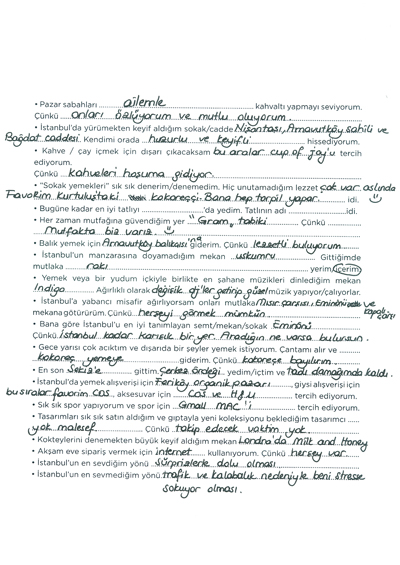 • Pazar sabahları ailemle kahvaltı yapmayı seviyorum.
Çünkü onları özlüyorum ve mutlu oluyorum.
• İstanbul'da yürümekten keyif aldığım sokak/cadde Nişantaşı, Arnavutköy sahili ve
Bağdat caddesi. Kendimi orada huzurlu ve keyifli hissediyorum.
• Kahve / çay içmek için dışarı çıkacaksam bu aralar cup of joy'u tercih
ediyorum.
Çünkü kahveleri hoşuma gidiyor.
• "Sokak yemekleri" sık sık denerim/denemedim. Hiç unutamadığım lezzet çok var aslında
Favorim kurtuluştaki kokoreççi. Bana hep torpil yapar. idi.
• Bugüne kadar en iyi tatlıyı 'da yedim. Tatlının adı idi.
• Her zaman mutfağına güvendiğim yer "Gram" tabiki Çünkü
Mutfakta biz varız.
• Balık yemek için Arnavutköy balıkçısı'na giderim. Çünkü lezzetli buluyorum.
• İstanbul'un manzarasına doyamadığım mekan uskumru Gittiğimde
mutlaka rakı yerim/içerim
• Yemek veya bir yudum içkiyle birlikte en şahane müzikleri dinlediğim mekan
Indigo Ağırlıklı olarak değişik dj'ler gelirip güzel müzik yapıyor/çalıyorlar.
• İstanbul'a yabancı misafir ağırlıyorsam onları mutlaka Mısır çarşısı, Eminönü ve kapalı çarşı
mekana götürürüm. Çünkü herşeyi görmek mümkün.
• Bana göre İstanbul'u en iyi tanımlayan semt/mekan/sokak Eminönü
Çünkü İstanbul kadar karışık bir yer. Aradığın ne varsa bulursun.
• Gece yarısı çok acıktım ve dışarıda bir şeyler yemek istiyorum. Çantamı alır ve
kokoreç yemeye giderim. Çünkü kokoreçe bayılırım.
• En son Sekiz'e gittim. Çerkez ördeği yedim/içtim ve tadı damağımda kaldı.
• İstanbul'da yemek alışverişi için Feriköy organik pazarı, giysi alışverişi için
bu sıralar favorim COS, aksesuvar için COS ve H&M tercih ediyorum.
• Sık sık spor yapıyorum ve spor için Gmall MAC'i tercih ediyorum.
• Tasarımları sık sık satın aldığım ve gıptayla yeni koleksiyonu beklediğim tasarımcı
yok malesef. Çünkü takip edecek vaktim yok.
• Kokteylerini denemekten büyük keyif aldığım mekan Londra'da Milk and Honey
• Akşam eve sipariş vermek için internet kullanıyorum. Çünkü herşey var.
• İstanbul'un en sevdiğim yönü sürprizlerle dolu olması
• İstanbul'un en sevmediğim yönü trafik ve kalabalık nedeniyle beni strese
sokuyor olması.